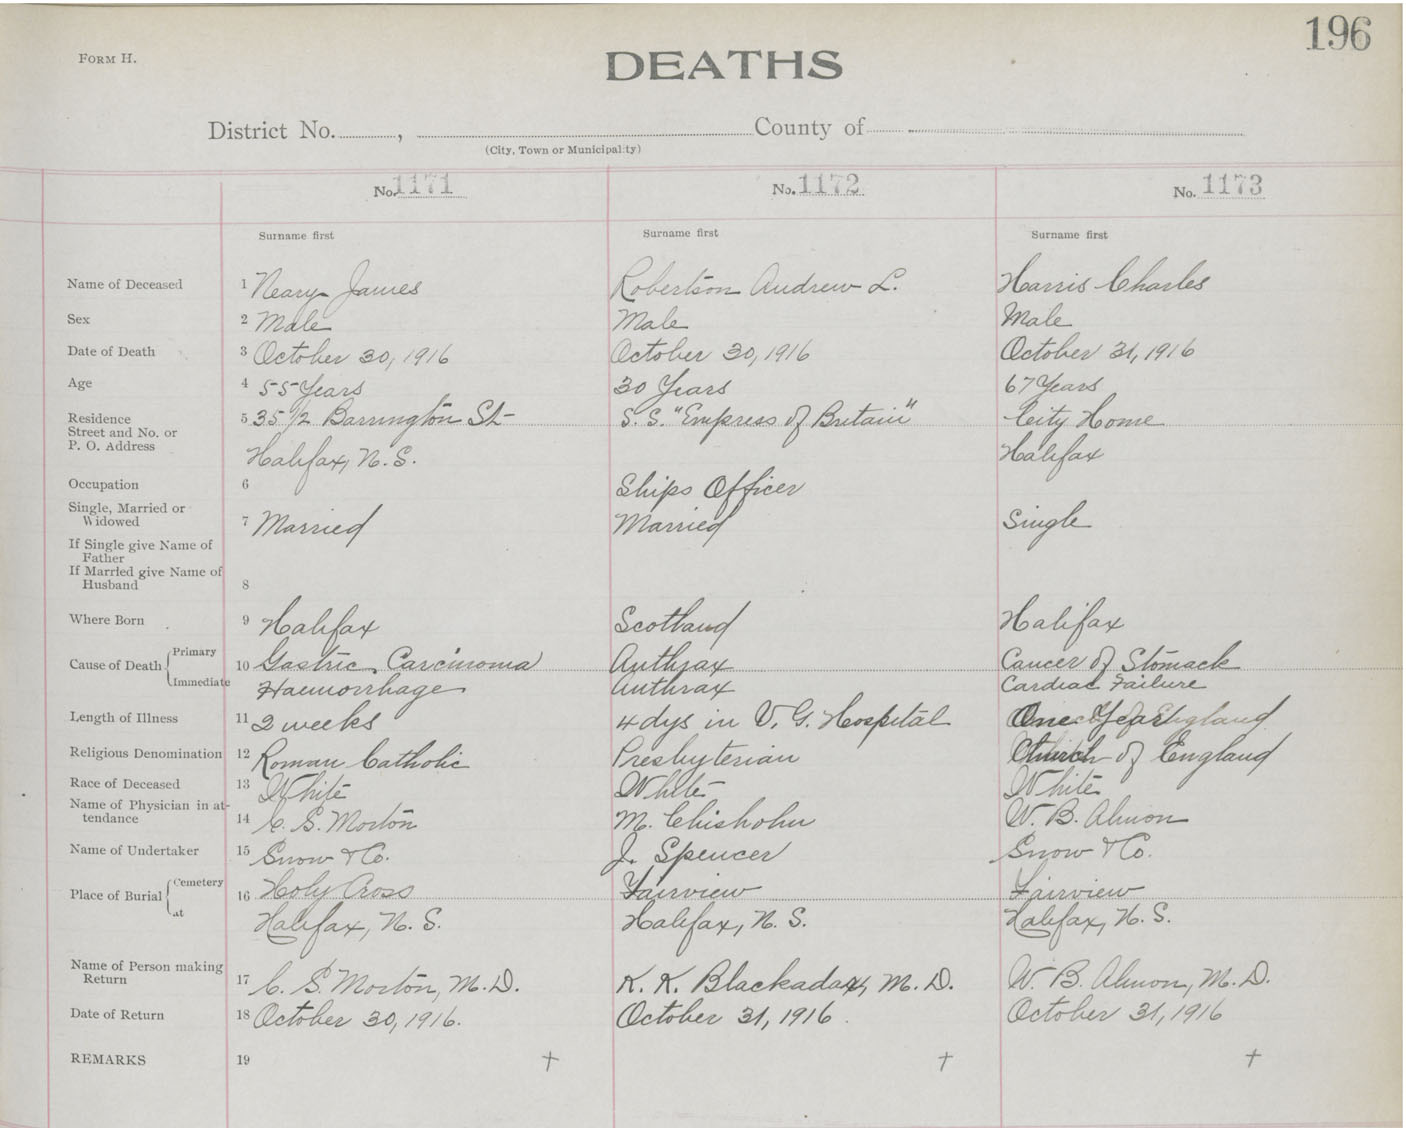 196
FORM H.
DEATHS
District No. , County of
(City, Town or Municipality)
No. 1171 No. 1172 No. 1173
Surname first Surname first Surname first
Name of Deceased 1 Neary James Robertson Andrew L. Harris Charles
Sex 2 Male Male Male
Date of Death 3 October 30, 1916 October 30, 1916 October 31, 1916
Age 4 55 Years 30 Years 67 Years
Residence 5 35 1/2 Barrington St S.S. "Empress of Britain" City Home
Street and No. or
P. O. Address Halifax, N.S. Halifax
Occupation 6 Ships Officer
Single, Married or
Widowed 7 Married Married Single
If Single give Name of
Father
If Married give Name of
Husband 8
Where Born 9 Halifax Scotland Halifax
Cause of Death Primary 10 Gastric Carcinoma Anthrax Cancer of Stomack
Immediate Haemorrhage Anthrax Cardiac Failure
Length of Illness 11 2 weeks 4 dys in V. G. Hospital One Year
Religious Denomination 12 Roman Catholic Presbyterian Church of England
Race of Deceased 13 White White White
Name of Physician in at-
tendance 14 C. S. Morton M. Chisholm W. B. Almon
Name of Undertaker 15 Snow & Co. J. Spencer Snow & Co.
Place of Burial Cemetery 16 Holy Cross Fairview Fairview
at Halifax, N. S. Halifax, N. S. Halifax, N. S.
Name of Person making
Return 17 C. S. Morton, M.D. K. K. Blackadar, M.D. W. B. Almon, M.D.
Date of Return 18 October 30, 1916. October 31, 1916. October 31, 1916
REMARKS 19 † † †